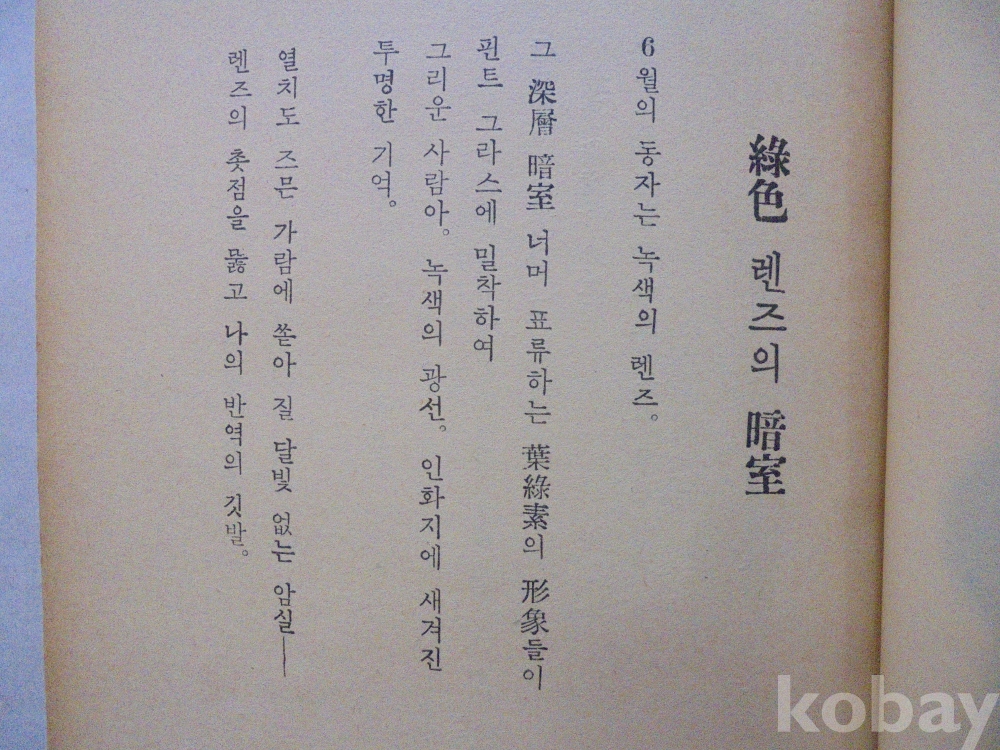 綠色 렌즈의 暗室
6월의 동자는 녹색의 렌즈。
그 深層 暗室 너머 표류하는 葉綠素의 形象들이
핀트 그라스에 밀착하여
그리운 사람아。 녹색의 광선。 인화지에 새겨진
투명한 기억。
열치도 즈믄 가람에 쏟아 질 달빛 없는 암실──
렌즈의 촛점을 뚫고 나의 반역의 깃발。
kobay